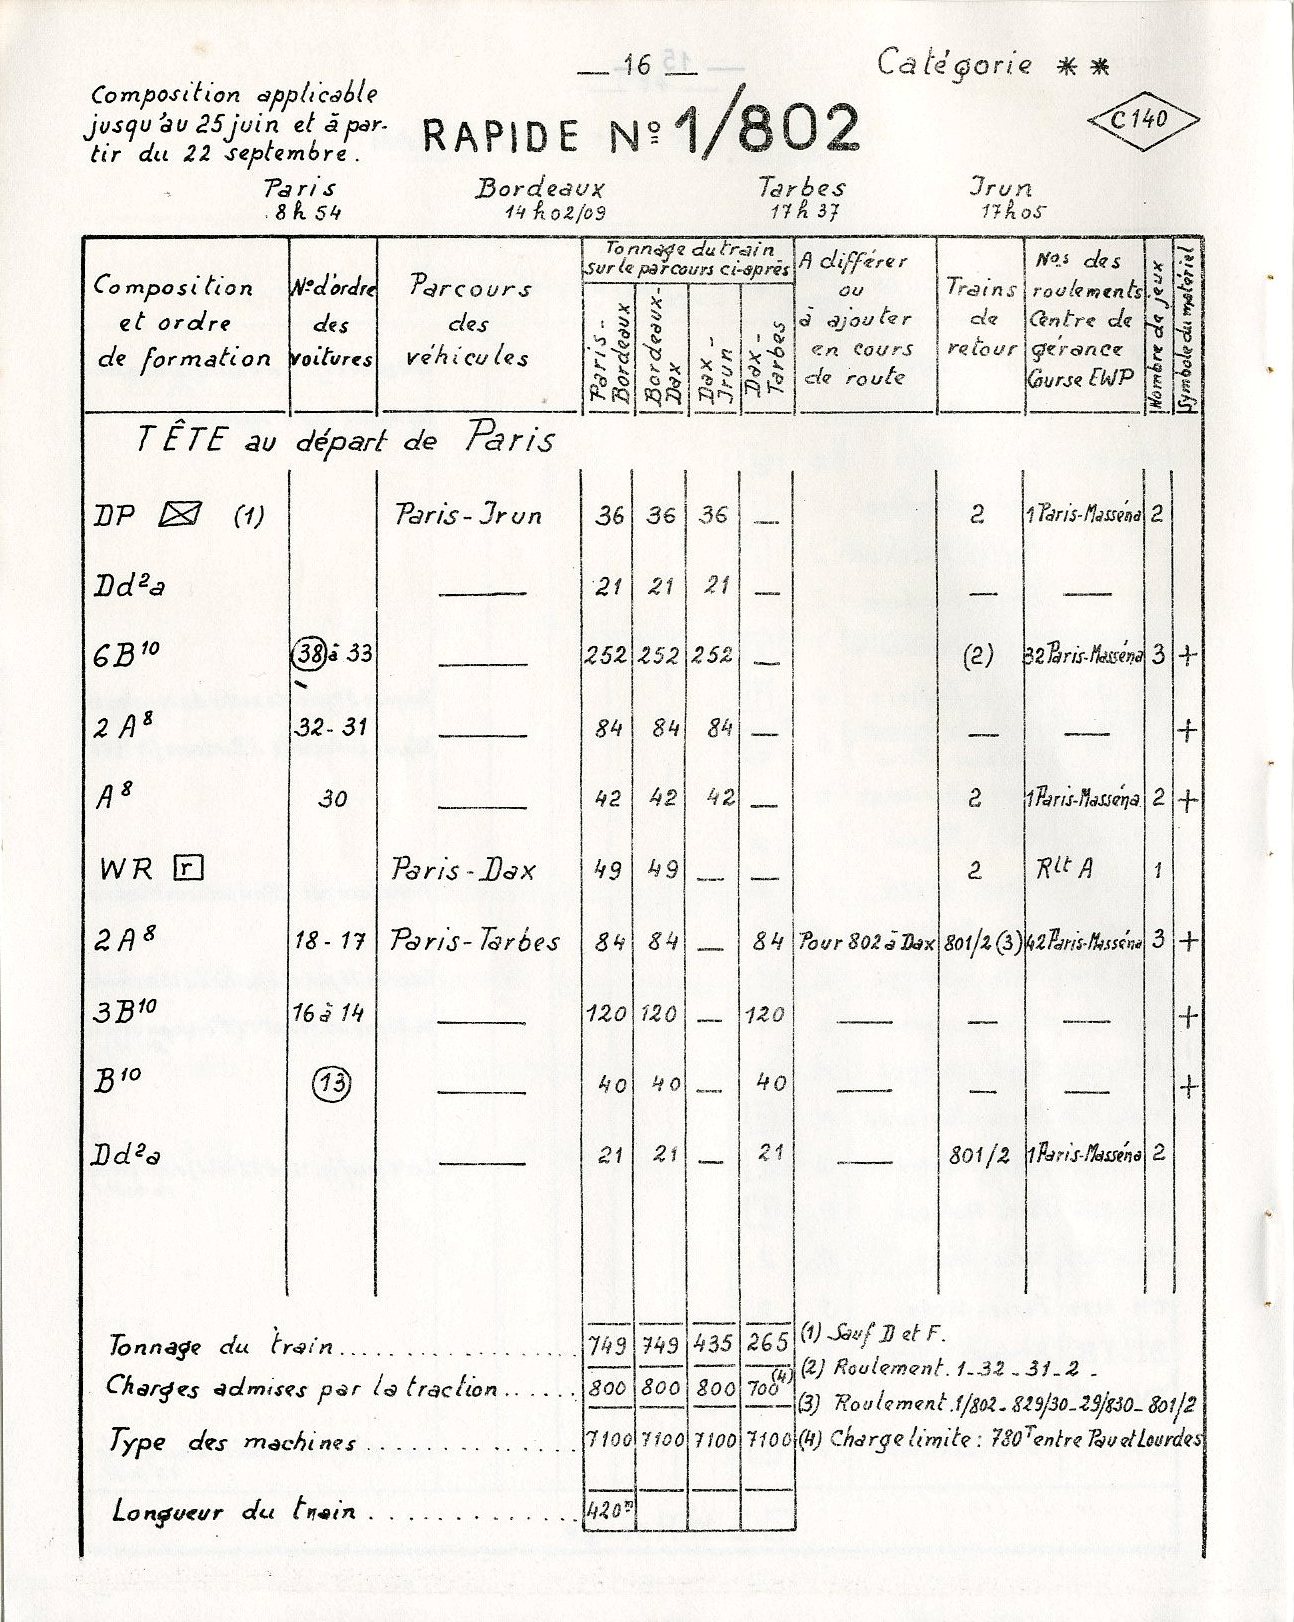 — 16 —
Catégorie * *
Composition applicable
jusqu'au 25 juin et à par-
tir du 22 septembre.
RAPIDE Nº 1/802
C140
Paris Bordeaux Tarbes Irun
8h54 14h02/09 17h37 17h05
Composition
et ordre
de formation
Nº d'ordre
des
voitures
Parcours
des
véhicules
Tonnage du train
sur le parcours ci-après
Paris-
Bordeaux
Bordeaux-
Dax
Dax-
Irun
Dax-
Tarbes
A différer
ou
à ajouter
en cours
de route
Trains
de
retour
Nos des
roulements
Centre de
gérance
Course EWP
Nombre de jeux
Symbole du matériel
TÊTE au départ de Paris
DP (1) Paris-Irun 36 36 36 — 2 1 Paris-Masséna 2
Dd²a — 21 21 21 — — —
6B¹⁰ 38 à 33 — 252 252 252 — (2) 32 Paris-Masséna 3 +
2A⁸ 32-31 — 84 84 84 — — — +
A⁸ 30 — 42 42 42 — 2 1 Paris-Masséna 2 +
WR r Paris-Dax 49 49 — — 2 Rlt A 1
2A⁸ 18-17 Paris-Tarbes 84 84 — 84 Pour 802 à Dax 801/2 (3) 42 Paris-Masséna 3 +
3B¹⁰ 16 à 14 — 120 120 — 120 — — — +
B¹⁰ 13 — 40 40 — 40 — — — +
Dd²a — 21 21 — 21 — 801/2 1 Paris-Masséna 2
Tonnage du train................. 749 749 435 265
Charges admises par la traction...... 800 800 800 700 (4)
Type des machines............... 7100 7100 7100 7100
Longueur du train............... 420m
(1) Sauf D et F.
(2) Roulement. 1-32-31-2-
(3) Roulement. 1/802-829/30-29/830-801/2
(4) Charge limite: 780T entre Pau et Lourdes